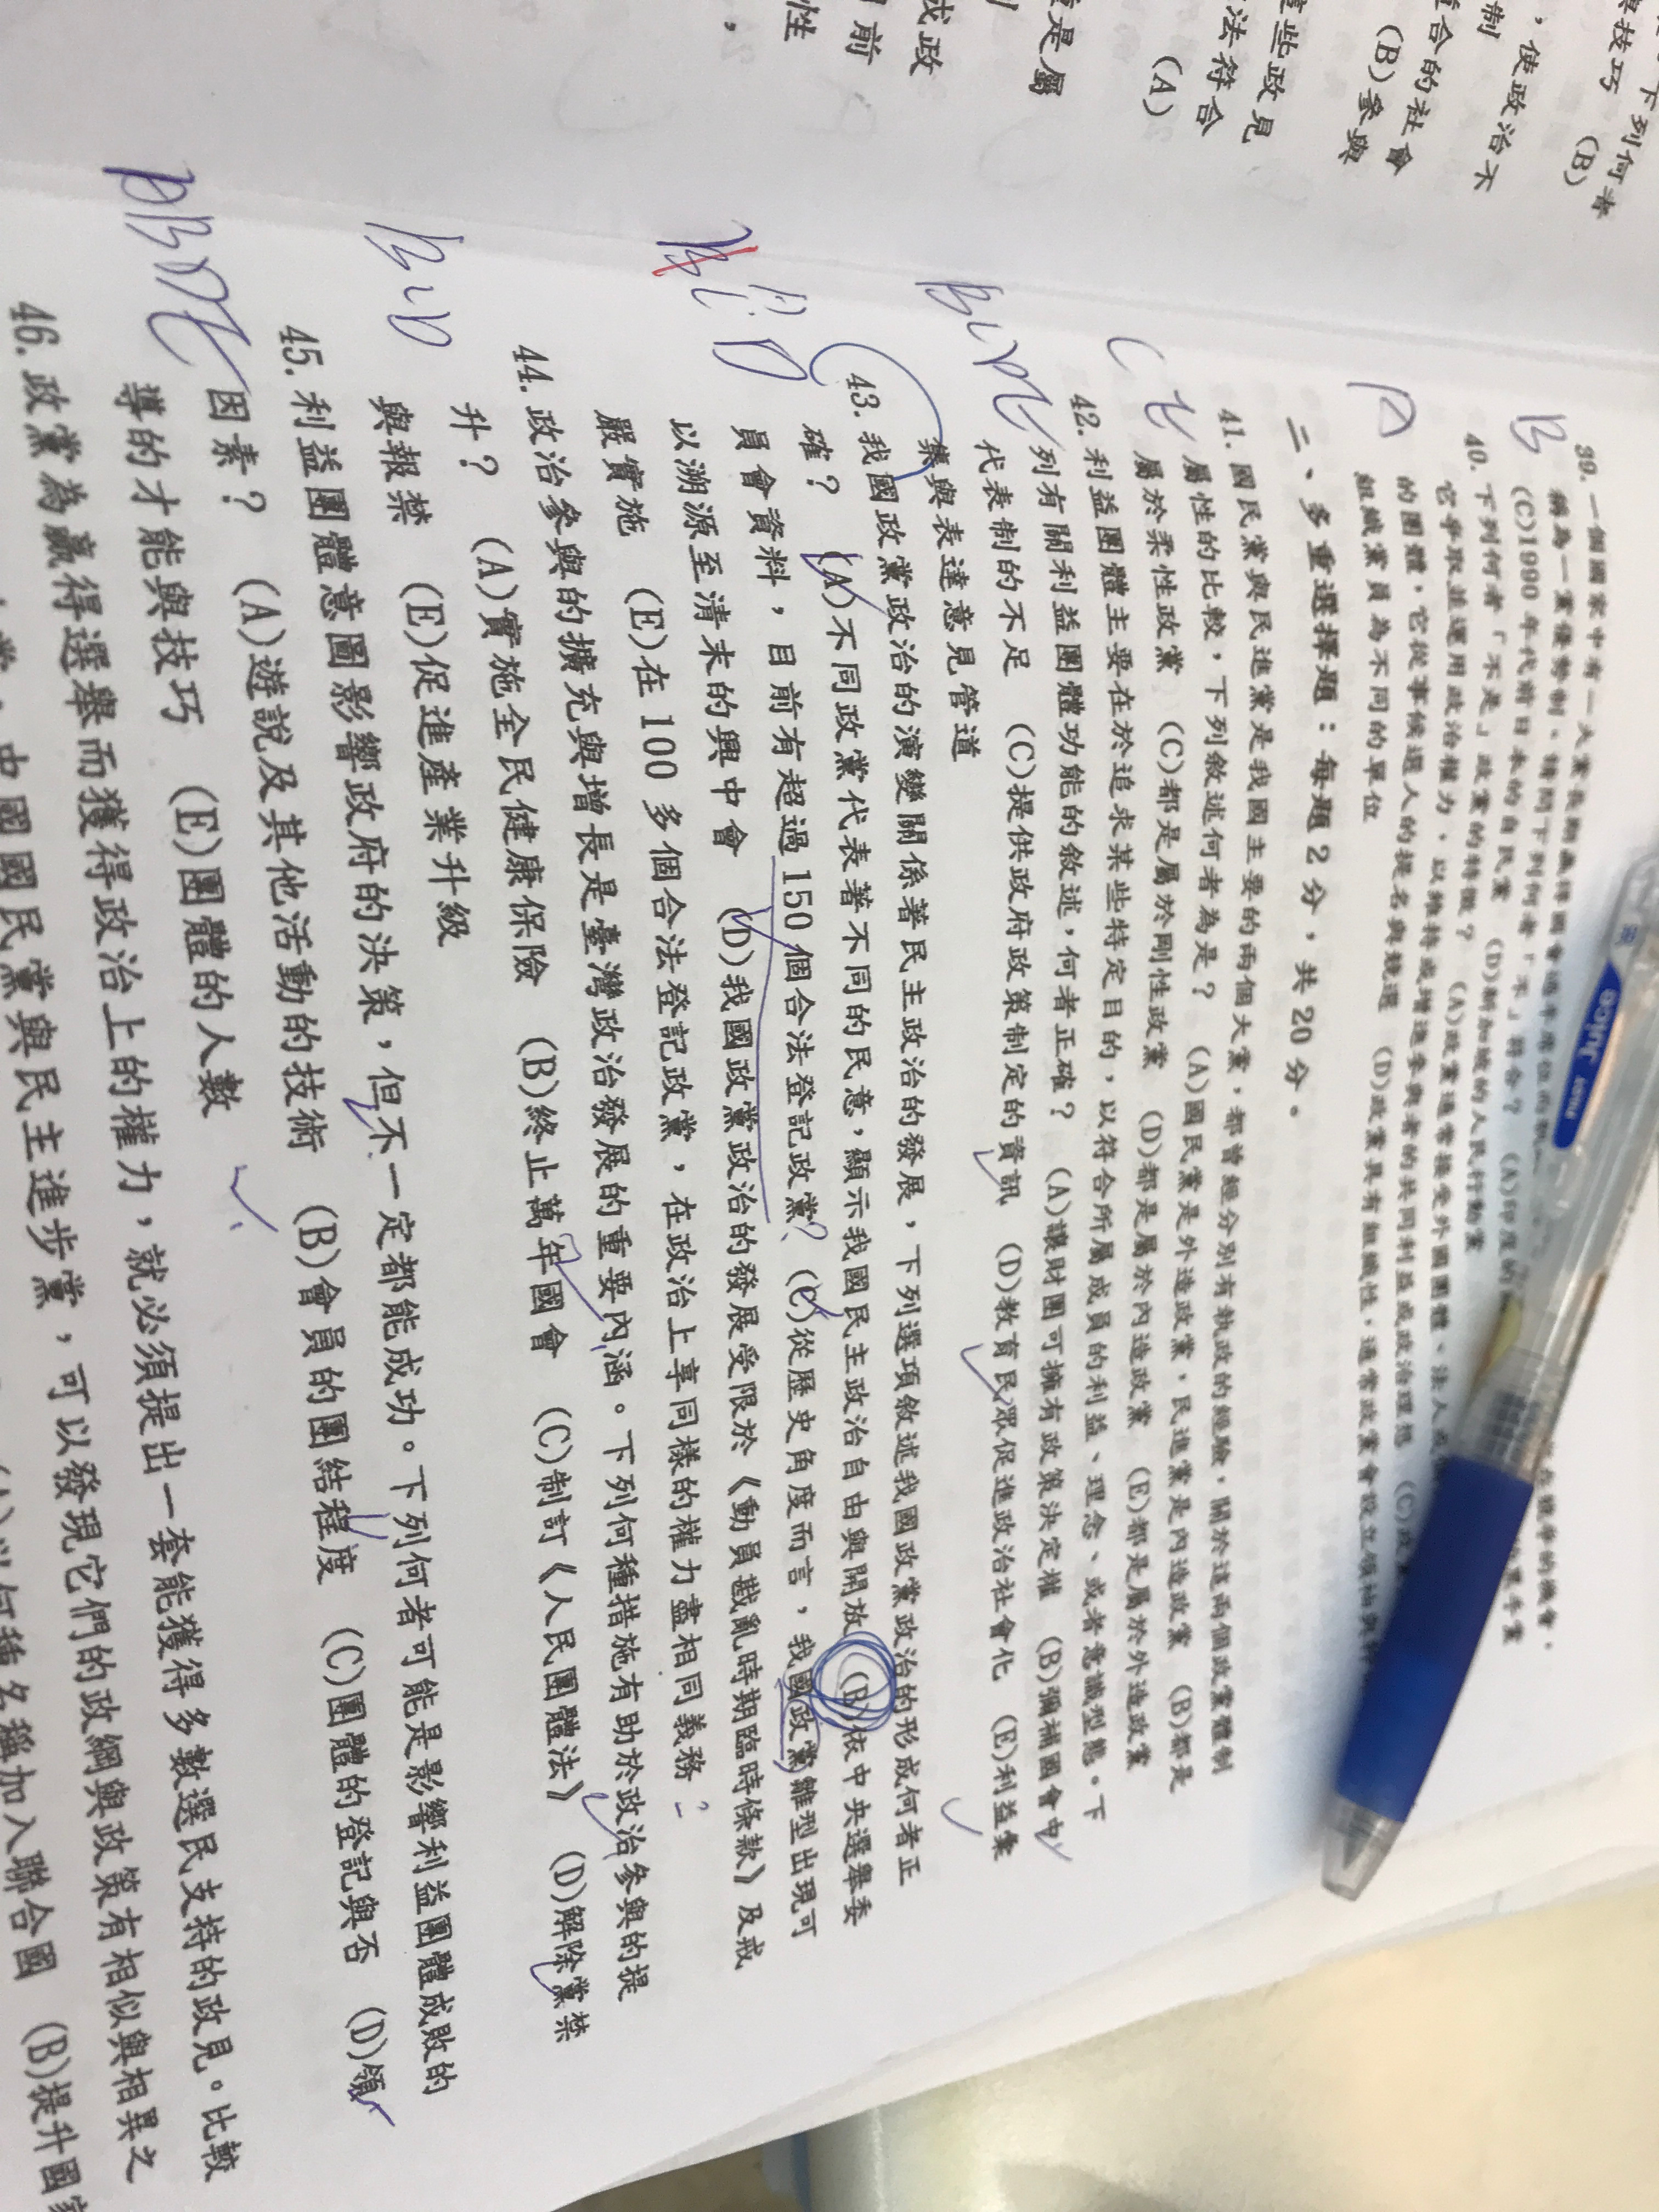 是屬
成政
前
性
，
些政見
法符合
(A)
，使政治不
制
合的社會
(B)參與
下列何者
技巧 (B)
B
39. 一個國家中有一大黨長期贏得國會過半席位而執
稱為一黨優勢制。請問下列何者「不」符合？ (A)印度的
(C)1990年代前日本的自民黨 (D)新加坡的人民行動黨
D
40. 下列何者「不是」政黨的特徵？ (A)政黨通常接受外國團體、法人或
它爭取並運用政治權力，以維持或增進參與者的共同利益或政治理想 (C)政
的團體，它從事候選人的提名與競選 (D)政黨具有組織性，通常政黨會設立領袖與
組織黨員為不同的單位
二、多重選擇題：每題2分，共20分。
C E
41. 國民黨與民進黨是我國主要的兩個大黨，都曾經分別有執政的經驗，關於這兩個政黨體制
屬性的比較，下列敘述何者為是？ (A)國民黨是外造政黨，民進黨是內造政黨 (B)都是
屬於柔性政黨 (C)都是屬於剛性政黨 (D)都是屬於內造政黨 (E)都是屬於外造政黨
BCDE
42. 利益團體主要在於追求某些特定目的，以符合所屬成員的利益、理念、或者意識型態。下
列有關利益團體功能的敘述，何者正確？ (A)讓財團可擁有政策決定權 (B)彌補國會中
代表制的不足 (C)提供政府政策制定的資訊 (D)教育民眾促進政治社會化 (E)利益彙
集與表達意見管道
43. 我國政黨政治的演變關係著民主政治的發展，下列選項敘述我國政黨政治的形成何者正
確？ (A)不同政黨代表著不同的民意，顯示我國民主政治自由與開放 (B)依中央選舉委
員會資料，目前有超過150個合法登記政黨？ (C)從歷史角度而言，我國政黨雛型出現可
以溯源至清末的興中會 (D)我國政黨政治的發展受限於《動員戡亂時期臨時條款》及戒
嚴實施 (E)在100多個合法登記政黨，在政治上享同樣的權力盡相同義務？
BCD
44. 政治參與的擴充與增長是臺灣政治發展的重要內涵。下列何種措施有助於政治參與的提
升？ (A)實施全民健康保險 (B)終止萬年國會 (C)制訂《人民團體法》 (D)解除黨禁
與報禁 (E)促進產業升級
ABDE
45. 利益團體意圖影響政府的決策，但不一定都能成功。下列何者可能是影響利益團體成敗的
因素？ (A)遊說及其他活動的技術 (B)會員的團結程度 (C)團體的登記與否 (D)領
導的才能與技巧 (E)團體的人數
46. 政黨為贏得選舉而獲得政治上的權力，就必須提出一套能獲得多數選民支持的政見。比較
中國國民黨與民主進步黨，可以發現它們的政綱與政策有相似與相異之
以何種名稱加入聯合國 (B)提升國家